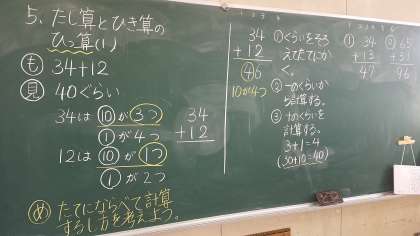 5. たし算とひき算の
ひっ算(1)
も 34+12
見 40ぐらい
34は ⑩が3つ
①が4つ
12は ⑩が1つ
①が2つ
34
+12
め たてにならべて計算
するし方を考えよう。
34
+12
46
10が4つ
①くらいをそろ
えてたてにか
く。
②一のくらいか
ら計算する。
③十のくらいを
計算する。
3+1=4
(30+10=40)
① 34
+13
47
② 65
+31
96